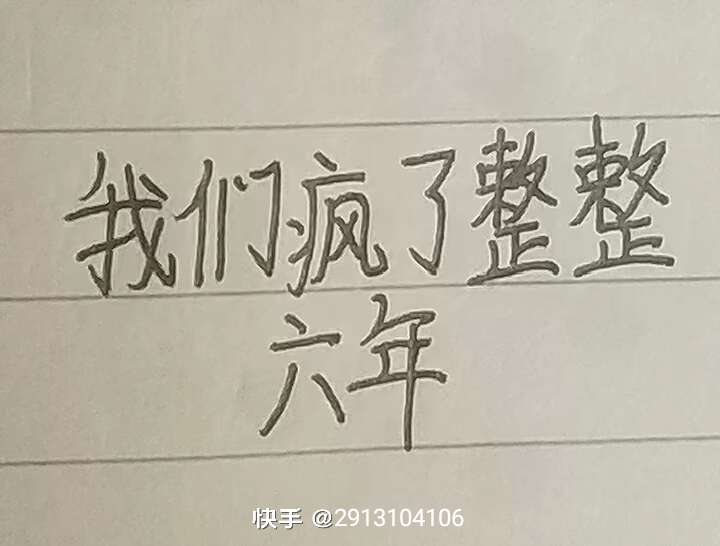 我们疯了整整
六年
快手 @2913104106